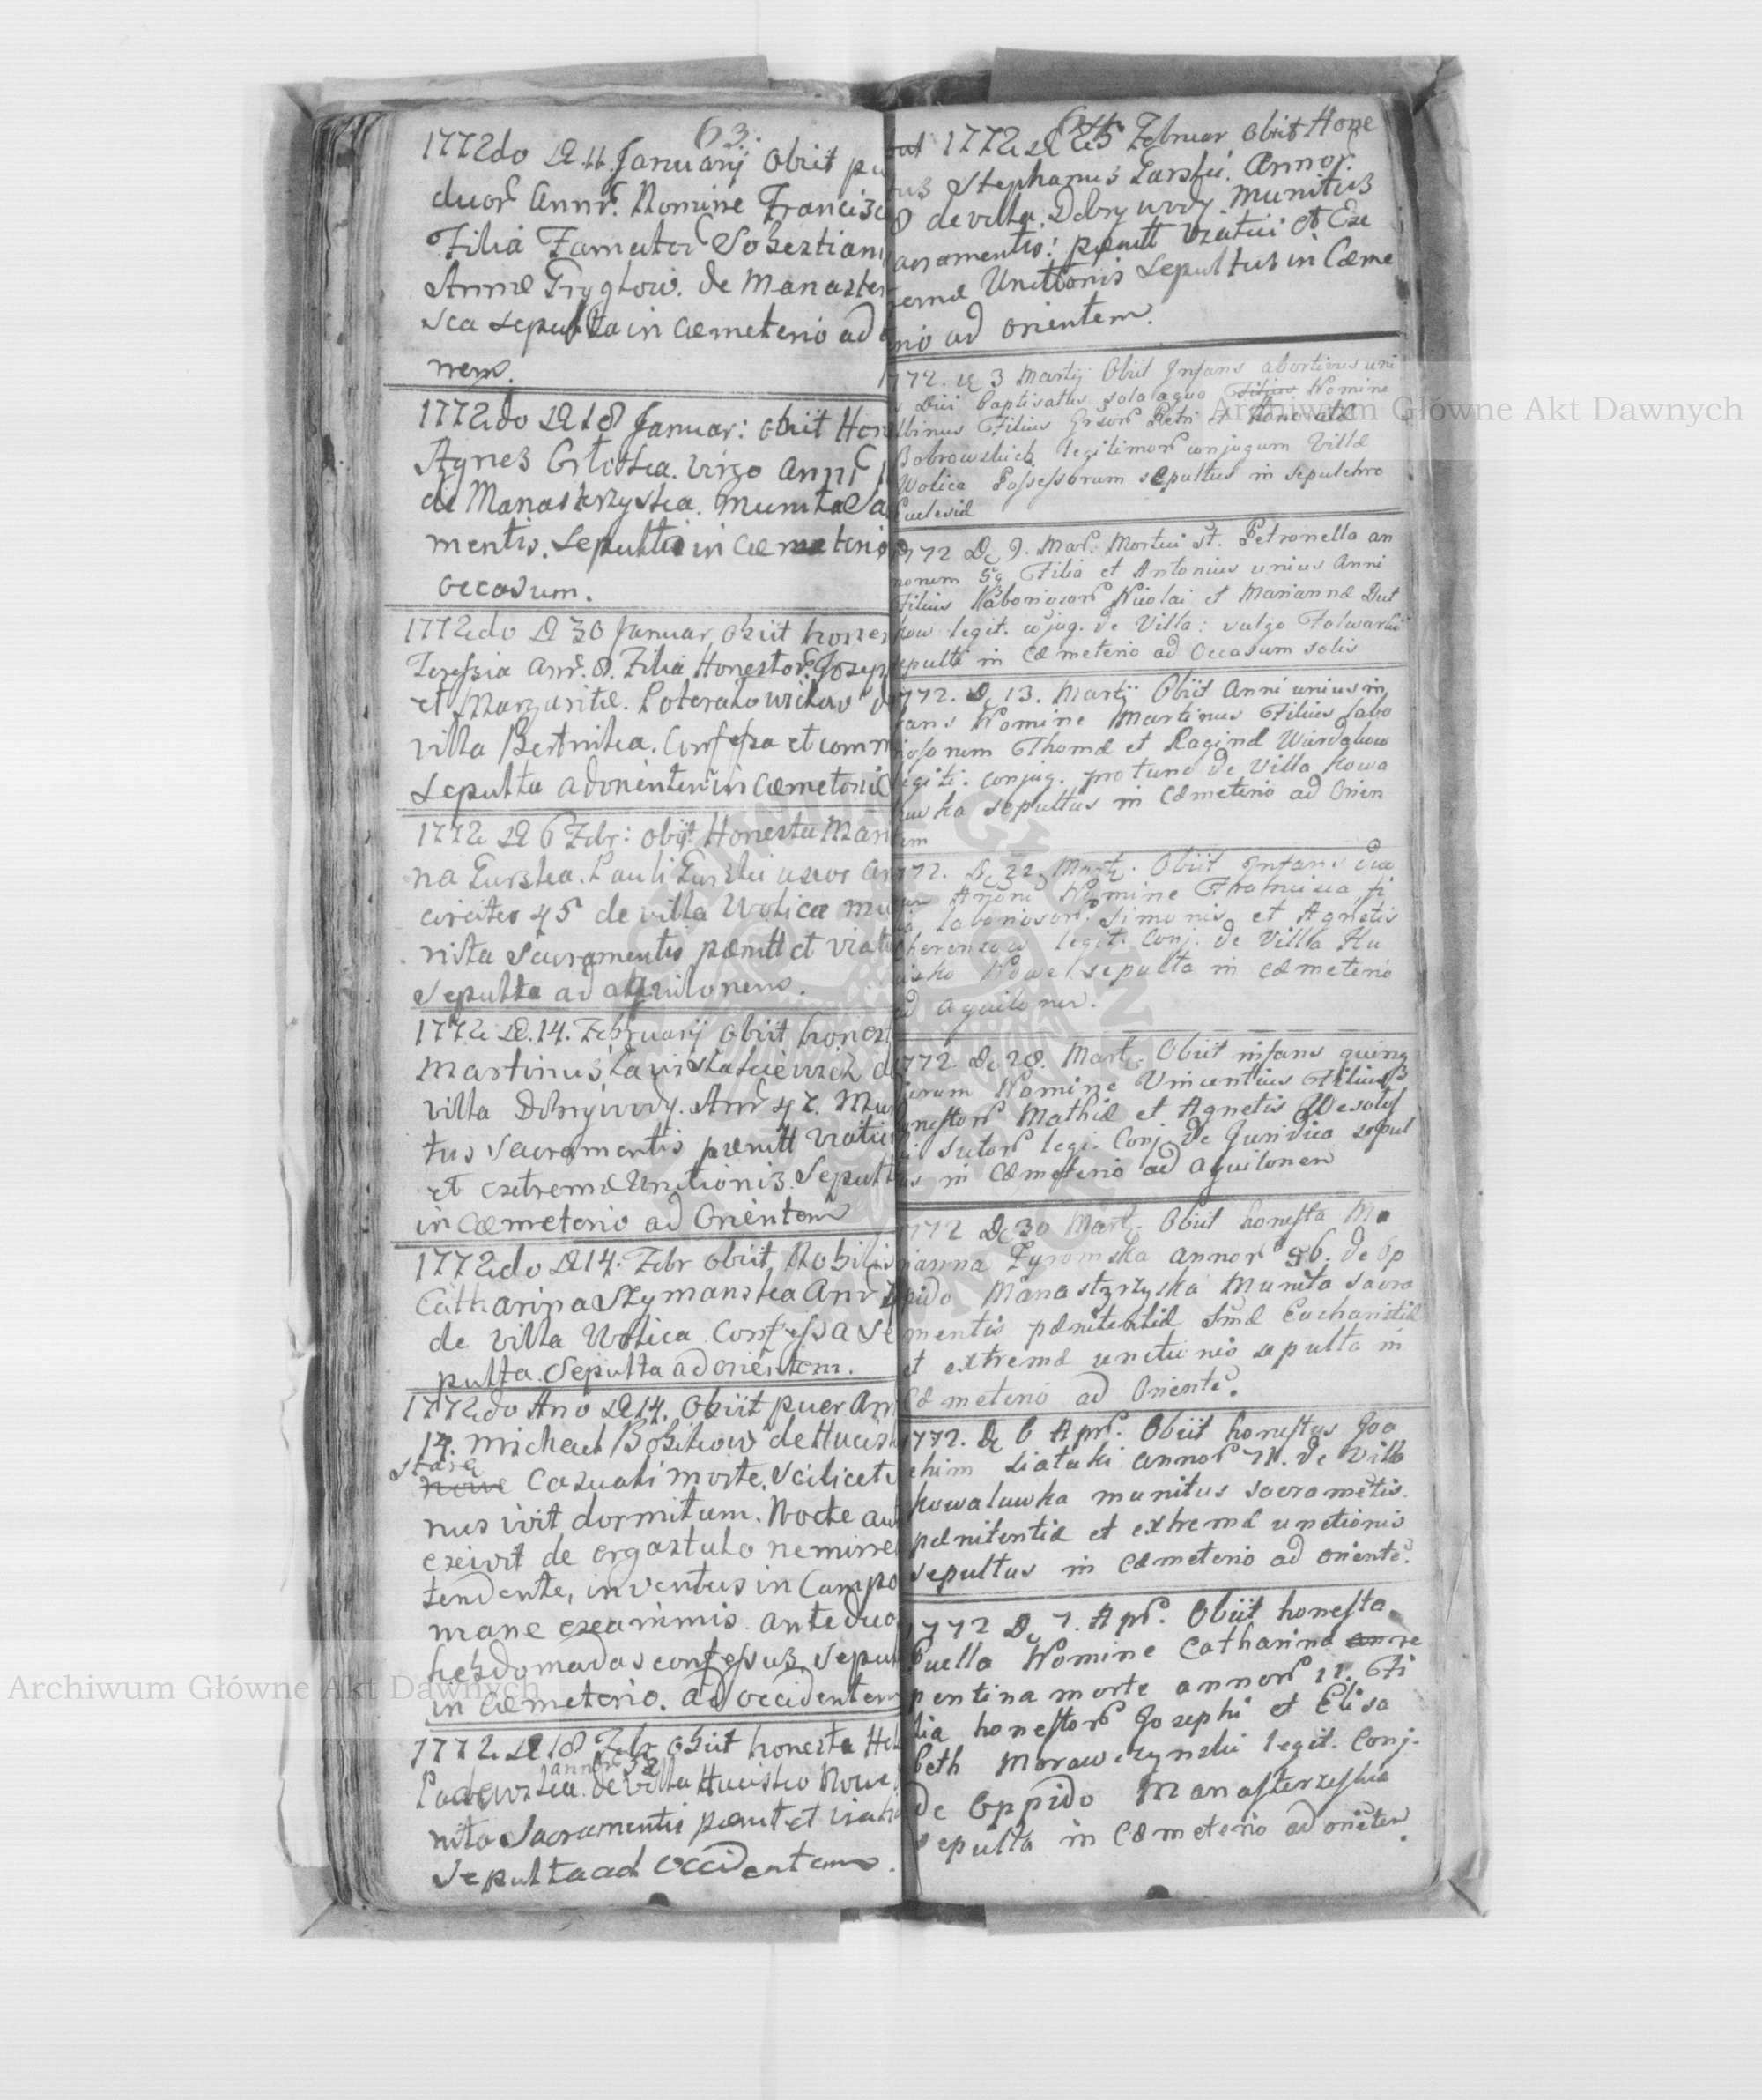 63.
1772do D 11 Januarij Obiit pu
duor Annr. Nomine Francisc
Filia Famator Sobestiani
Annæ Gryglow. de Manaster
sca sepulta in Cæmeterio ad
nem.
1772do D 18 Januar: obiit Hon
Agnes Virgo Anni
de Manasterzyska. Munita Sa
mentis. Sepulta in Cæmeterio
occasum.
1772do D 30 Januar, obiit hones
Teressia Anr. 8. Filia Honestor. Josep
et Margaritæ. Poteralowickow d
villa Bertnika. Confessa et comm
Sepulta ad orientem in Cæmeterio
1772 D 6 Febr: obijt Honesta Mari
na Gurska. Pauli Gurski uxor an
circiter 45 de villa Wolica mu
nita Sacramentis pænitt et viati
Sepulta ad aquilonem.
1772 D. 14. Februarij obiit honest
Martinus d
villa Dobrywody. Anr 47. Mu
tus Sacramentis pænitt viatici
et extremæ Unctionis. Sepult
in Cæmeterio ad Orientem
1772do D 14. Febr obiit Nobilis
Catharina Szymanska Anr
de villa Wolica Confessa Se
pulta. Sepulta ad orientem.
1772do Ano D 14. Obiit puer Ann
14. Michael Bobikow de Hucisk
stare
nowe Casuali morte. Scilicet
nus ivit dormitum. Nocte au
exivit de ergastulo nemine
tendente, inventus in Campo
mane exanimis. ante duo
hebdomadas confessus. Sepul
in Cæmeterio. ad occidentem
1772 D 18 Febr obiit honesta Hel
annor 32
de villa Hucisko Nowe
nita Sacramentis pænit et viati
Sepulta ad occidentem.
64
1772 D 25 Februar obiit Hone
tus Stephanus Gurski. Annor.
8 de villa. Dobrywody. Munitus
acramentis: pænitt Viatici et Exe
remæ Unctionis Sepultus in Cæme
rio ad orientem.
1772. D 3 Martij Obiit Infans abortivus uni
s Diei Baptisatus sola aqua Filius Nomine
lbinus Filius Petri et Honoratæ
Bobrowskich legitimor conjugum Villæ
Wolica Possessorum sepultus in sepulchro
Ecclesiæ
1772 D 9. Mar. Mortui st. Petronella an
norum 5q Filia et Antonius unius Anni
Filius Laboriosor Nicolai et Mariannæ Dut
kow legit. cojug. de Villa: vulgo Folwarki
sepulti in Cæmeterio ad Occasum solis
1772. D 13. Martij Obiit Anni unius in
fans Nomine Martinus Filius labo
riosorum Thomæ et Raginæ
legiti. conjug. pro tunc de Villa Kowa
luwka sepultus in Cæmeterio ad Orien
tem
1772. D 22. Martij. Obiit Infans dua
rum Anorū Nomine Franciscia fi
lia laboriosor Simonis et Agnetis
legit. Conj. de Villa Hu
cisko Nowe sepulta in cæmeterio
ad aquilonem.
1772 D 28. Mart. Obiit infans quinq
ierum Nomine Vincentius Filius
onestor Mathiæ et Agnetis Wesolof
ki Sutor legi. Conj. de Juridica sepul
tus in Cæmeterio ad aquilonem
1772 D 30 Mart. Obiit honesta Ma
rianna Zyromska annor 56. de Op
pido Manastyrzyska Munita sacra
mentis pænitentiæ Smæ Eucharistiæ
et extremæ unctionis sepulta in
Cæmeterio ad Orientē.
1772. D 6 Apr. Obiit honestus Joa
chim annor 71. de Villa
Kowaluwka munitus sacramētis.
pænitentiæ et extremæ unctionis
sepultus in Cæmeterio ad orientē.
1772 D 7. Apr. Obiit honesta
Puella Nomine Catharina anre
pentina morte annor 12. Fi
lia honestor Josephi et Elisa
beth Morawczynski legit. Conj.
de Oppido Manasterzeska
sepulta in Cæmeterio ad oriētem.
Archiwum Główne Akt Dawnych
Archiwum Główne Akt Dawnych